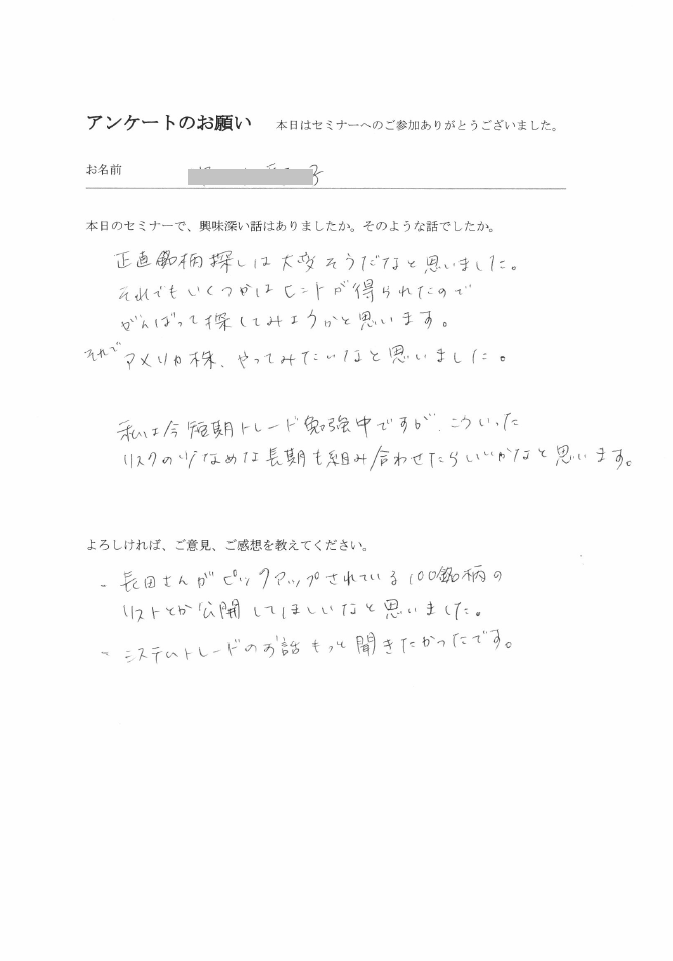 アンケートのお願い　本日はセミナーへのご参加ありがとうございました。
お名前
本日のセミナーで、興味深い話はありましたか。そのような話でしたか。
正直銘柄探しは大変そうだなと思いました。
それでもいくつかはヒントが得られたので
がんばって探してみようかと思います。
それで アメリカ株、やってみたいなと思いました。
私は今短期トレード勉強中ですが、こういった
リスクの少なめな長期も組み合わせたらいいかなと思います。
よろしければ、ご意見、ご感想を教えてください。
- 長田さんがピックアップされている100銘柄の
リストとか公開してほしいなと思いました。
- システムトレードのお話もっと聞きたかったです。